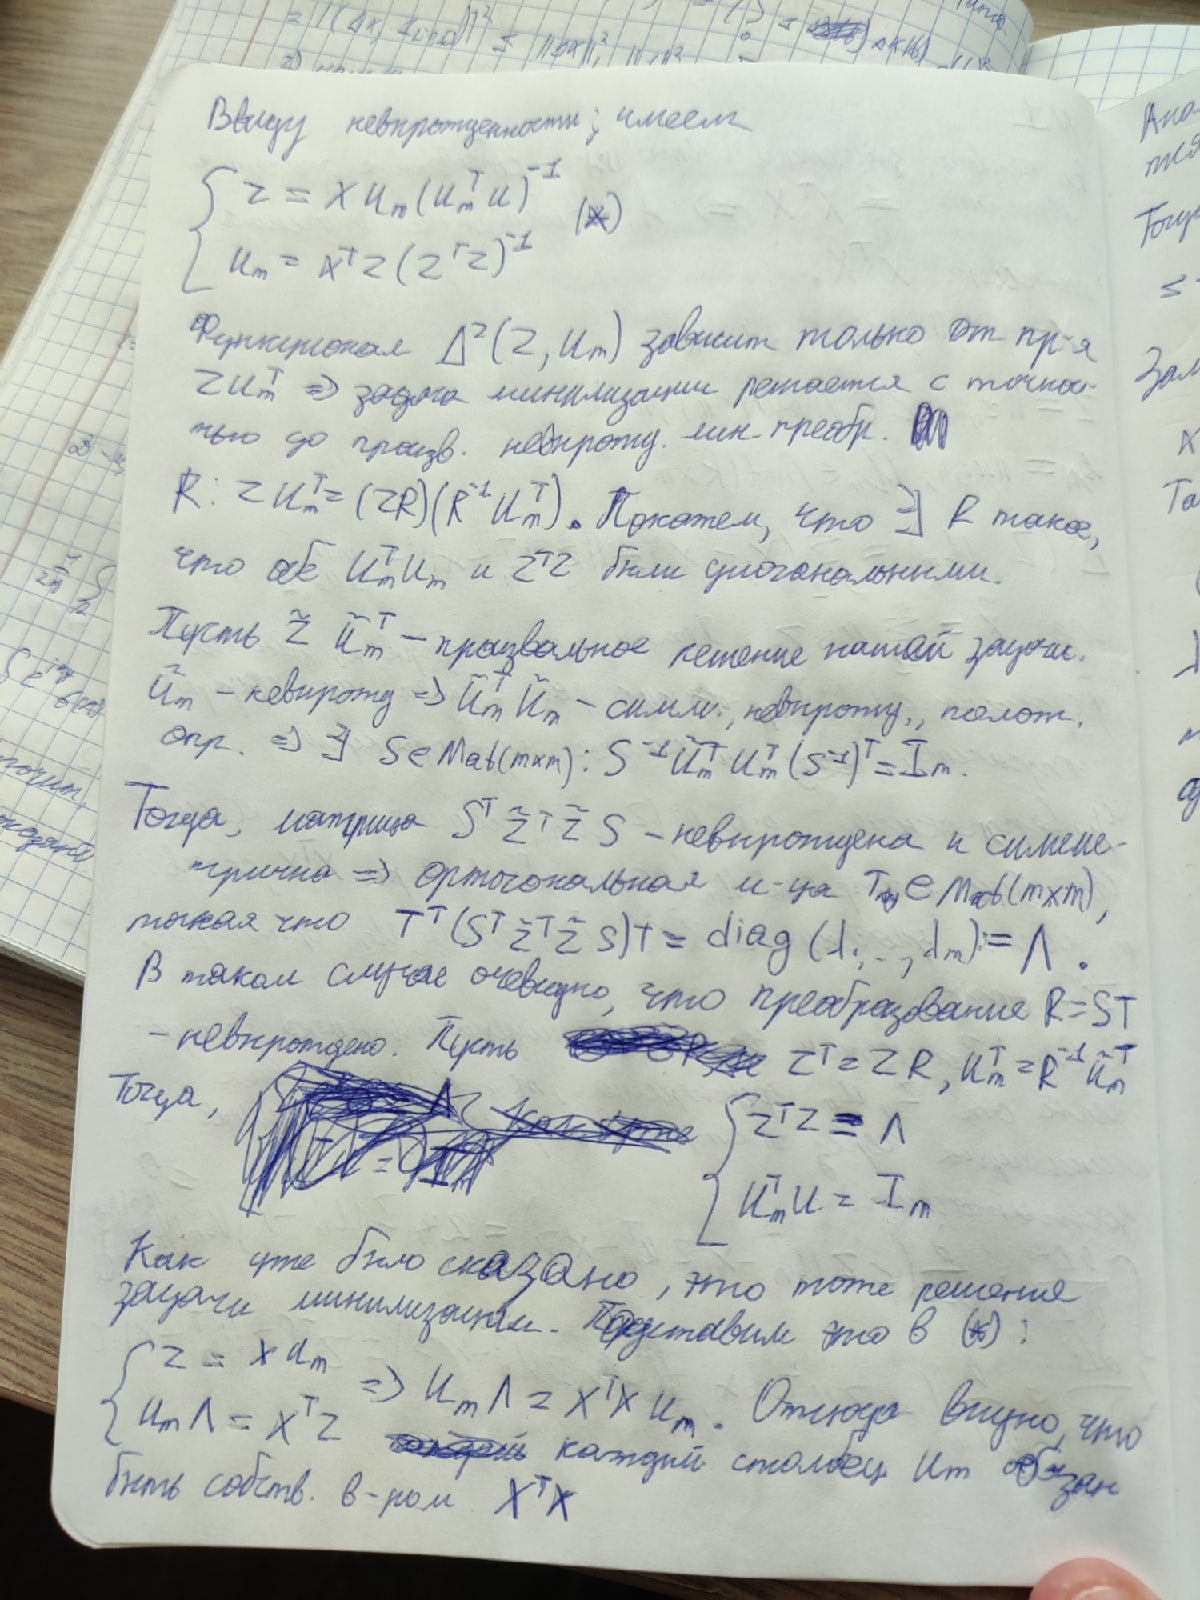 = |(Δx,
Ввиду невырожденности; имеем
Z = X U_m (U_m^T U)^{-1}
(*)
U_m = X^T Z (Z^T Z)^{-1}
Функционал Δ^2 (Z, U_m) зависит только от пр-я
Z U_m^T => задача минимизации решается с точнос-
тью до произв. невырожд. лин. преобр.
R: Z U_m^T = (ZR)(R^{-1} U_m^T). Покажем, что ∃ R такое,
что обе U_m^T U_m и Z^T Z были диагональными.
Пусть Z̃ Ũ_m^T – произвольное решение нашей задачи.
Ũ_m – невырожд => Ũ_m^T Ũ_m – симм., невырожд., полож.
опр. => ∃ S ∈ Mat(m×m): S^{-1} Ũ_m^T U_m^T (S^{-1})^T = I_m.
Тогда, матрица S^T Z̃^T Z̃ S – невырождена и симме-
трична => ортогональная м-ца T ∈ Mat(m×m),
такая что T^T (S^T Z̃^T Z̃ S) T = diag (λ_1, .., λ_m) := Λ.
В таком случае очевидно, что преобразование R = ST
– невырождено. Пусть Z^T = Z R, U_m^T = R^{-1} Ũ_m^T
Тогда,
Z^T Z = Λ
U_m^T U = I_m
Как уже было сказано, это тоже решения
задачи минимизации. Подставим это в (*):
Z = X U_m
=> U_m Λ = X^T X U_m. Отсюда видно, что
U_m Λ = X^T Z
каждый столбец U_m обязан
быть собств. в-ром X^T X
Ана
Тогд
≤
Зам
X
Та